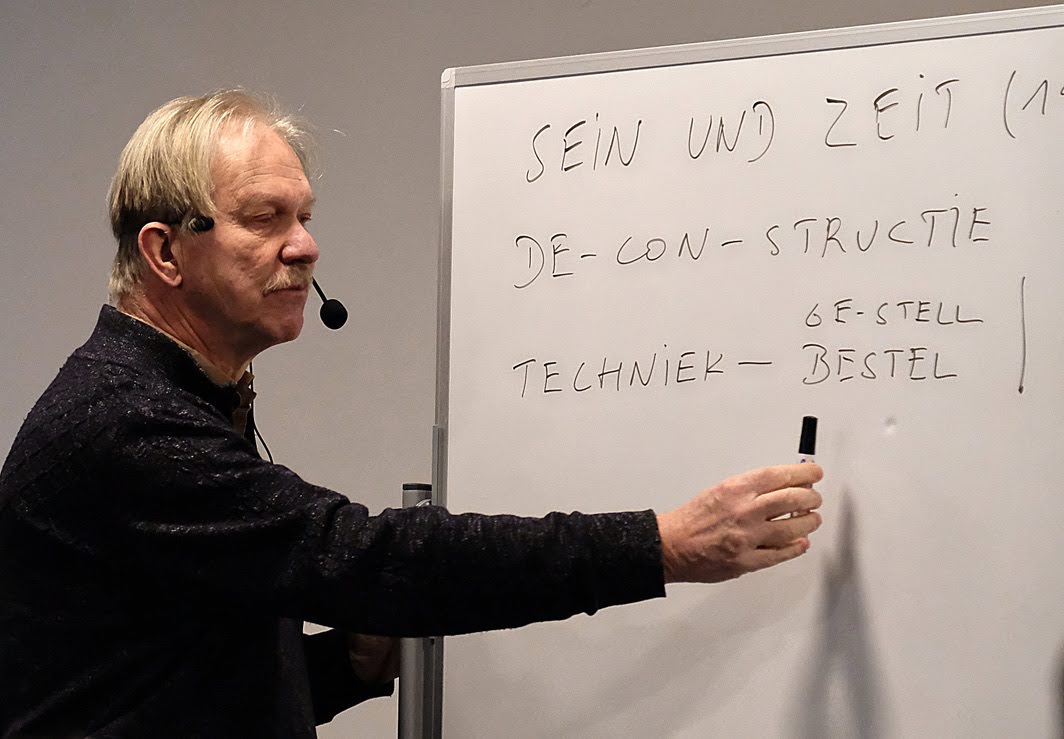 SEiN UND ZEiT (19
DE-CON-STRUCTiE
GE-STELL
TECHNiEK - BESTEL